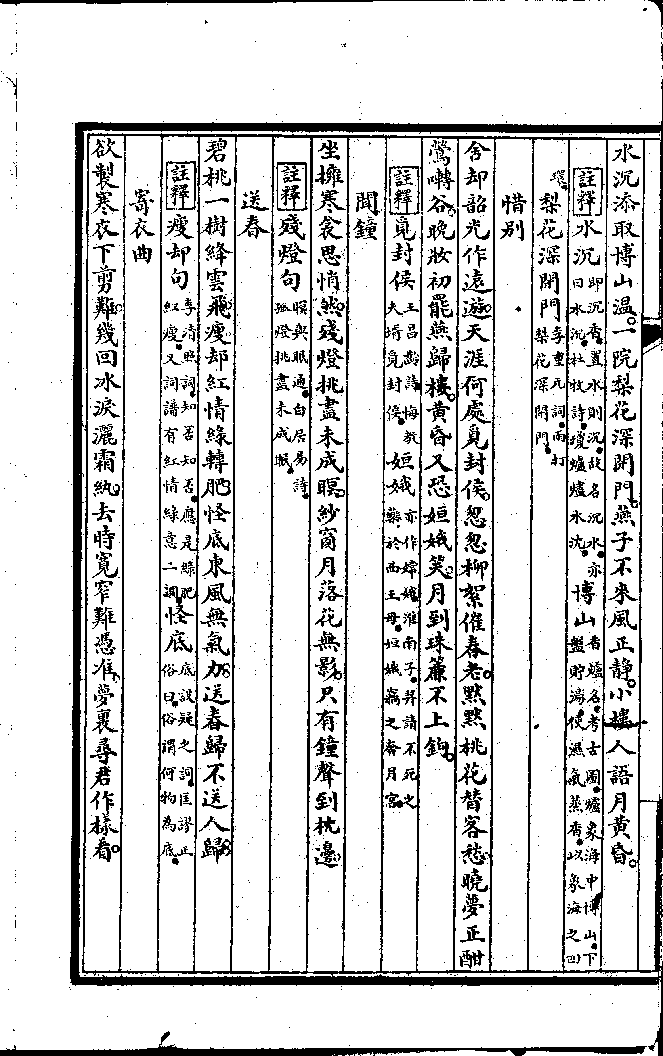 水沉添取博山温。一院梨花深閉門。燕子不來風正静。小樓人語月黄昏。
註釋 水沉 即沉香。置水則沉。故名沉水。亦曰水沉。杜牧詩。瓊爐爐水沈。 博山 香爐名。考古圖。爐象海中博山。下盤貯湯。使濕氣蒸香。以象海之四
環。 梨花深閉門 李重元詞。雨打梨花深閉門。
惜别
舍却韶光作遠遊。天涯何處覓封侯。怱怱柳絮催春老。黙黙桃花替客愁。曉夢正酣
鶯囀谷。晚妝初罷燕歸樓。黄昏又恐姮娥笑。月到珠簾不上鉤。
註釋 覓封侯 王昌齡詩。悔教夫壻覓封侯。 姮娥 亦作嫦娥。淮南子。羿請不死之藥於西王母。姮娥竊之奔月宮。
聞鐘
坐擁寒衾思悄然。殘燈挑盡未成瞑。紗窗月落花無影。只有鐘聲到枕邊。
註釋 殘燈句 瞑與眠通。白居易詩。孤燈挑盡未成眠。
送春
碧桃一樹絳雲飛。瘦却紅情綠轉肥。怪底東風無氣力。送春歸不送人歸。
註釋 瘦却句 李清照詞。知否知否。應是綠肥紅瘦。又詞譜有紅情綠意二調。 怪底 底設疑之詞。匡謬正俗曰。俗謂何物為底。
寄衣曲
欲製寒衣下剪難。幾回冰淚灑霜紈。去時寬窄難憑准。夢裏尋君作樣看。